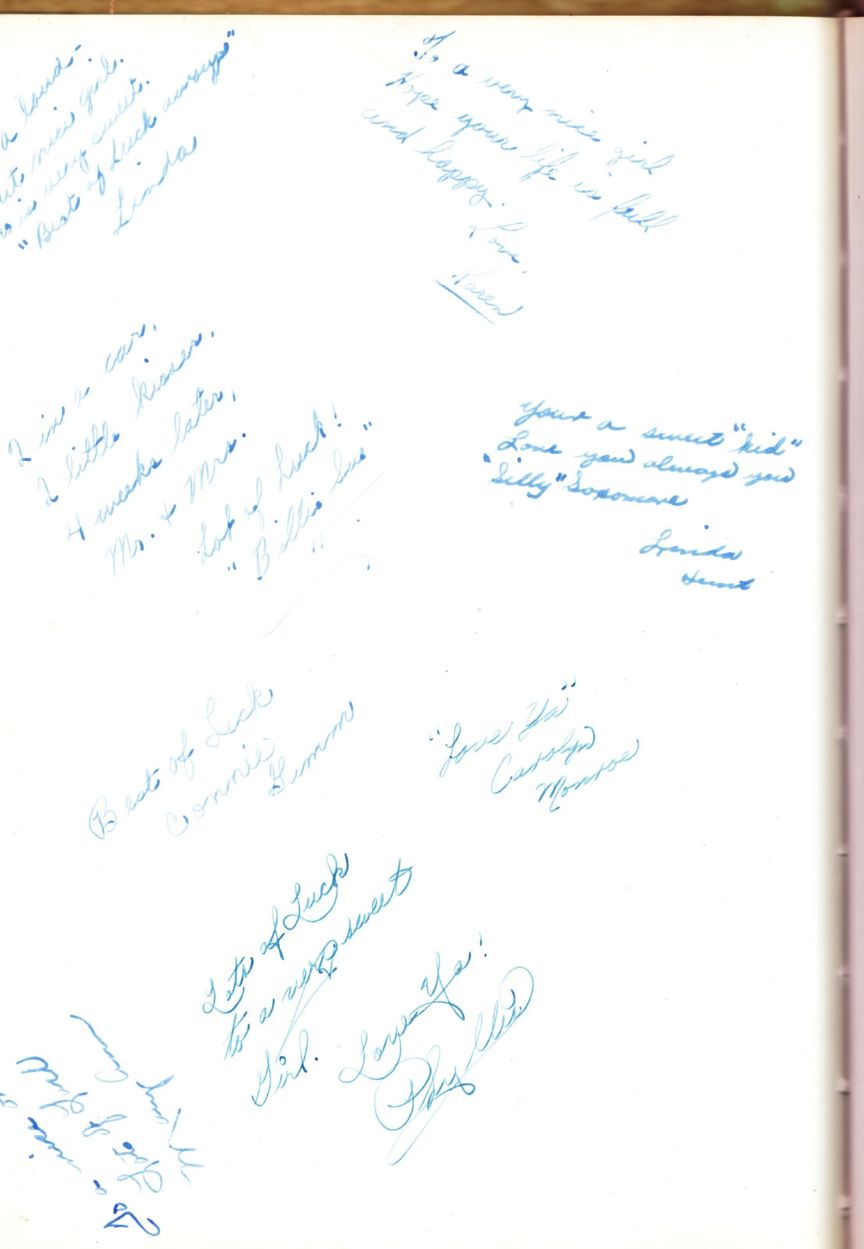 a loud-
nice girl.
is very sweet.
"Best of Luck always"
Linda
To a very nice girl
Hope your life is full
and happy.
Love,
Karen
2 in a car,
2 little kisses,
4 weeks later,
Mr. & Mrs.
Lot of Luck!
"Billie Sue"
Your a sweet "kid"
Love you always you
"Silly" Soxomore
Linda
Hunt
Best of Luck
Connie
Gumm
"Love Ya"
Carolyn
Monroe
Lots of Luck
to a very sweet
Girl.
Love Ya!
Phyllis
To a nice
Lots of Luck
Mary Ann